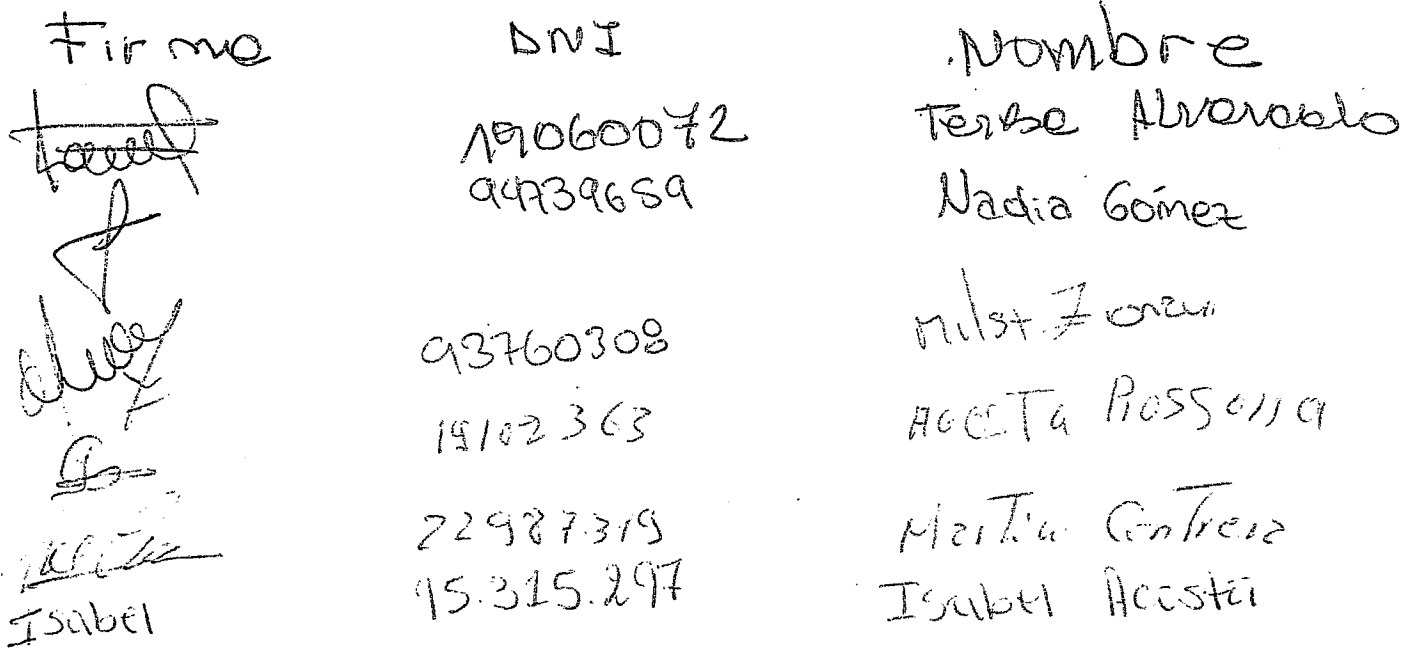 Firma DNI Nombre
19060072 Teresa Alvarado
94739659 Nadia Gómez
93760308
19102363 Acosta Rossana
22987319 Martin Contrera
Isabel 95.315.297 Isabel Acosta